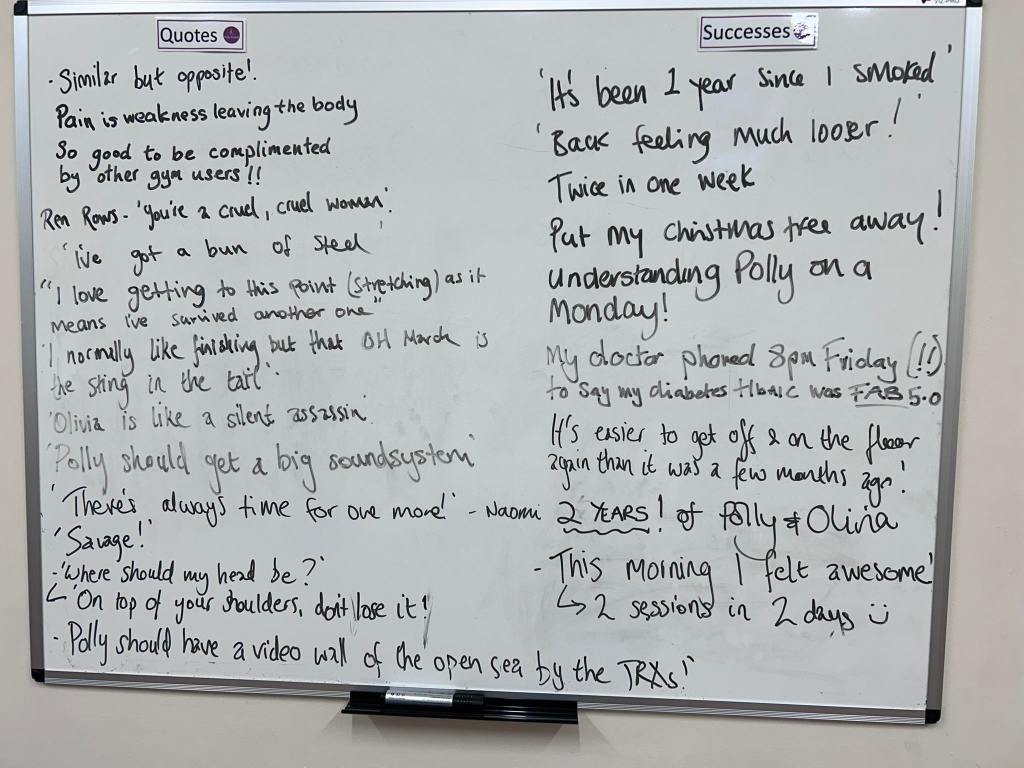 Quotes
- Similar but opposite!
Pain is weakness leaving the body
So good to be complimented
by other gym users!!
Ren Rows - 'you're a cruel, cruel woman'.
'i've got a bun of steel'
"I love getting to this point (stretching) as it
means i've survived another one"
'I normally like finishing but that OH March is
the sting in the tail'.
'Olivia is like a silent assassin'.
'Polly should get a big soundsystem'
'There's always time for one more!' - Naomi
'Savage!'
- 'Where should my head be?'
↳ 'On top of your shoulders, don't lose it!'
- Polly should have a video wall of the open sea by the TRXs!'
Successes
'It's been 1 year since I smoked'
'Back feeling much looser!'
Twice in one week
Put my christmas tree away!
Understanding Polly on a
Monday!
My doctor phoned 8pm Friday (!!)
to say my diabetes HbA1C was FAB 5.0
It's easier to get off & on the floor
again than it was a few months ago!
2 YEARS! of Polly & Olivia
- 'This morning I felt awesome'
↳ 2 sessions in 2 days